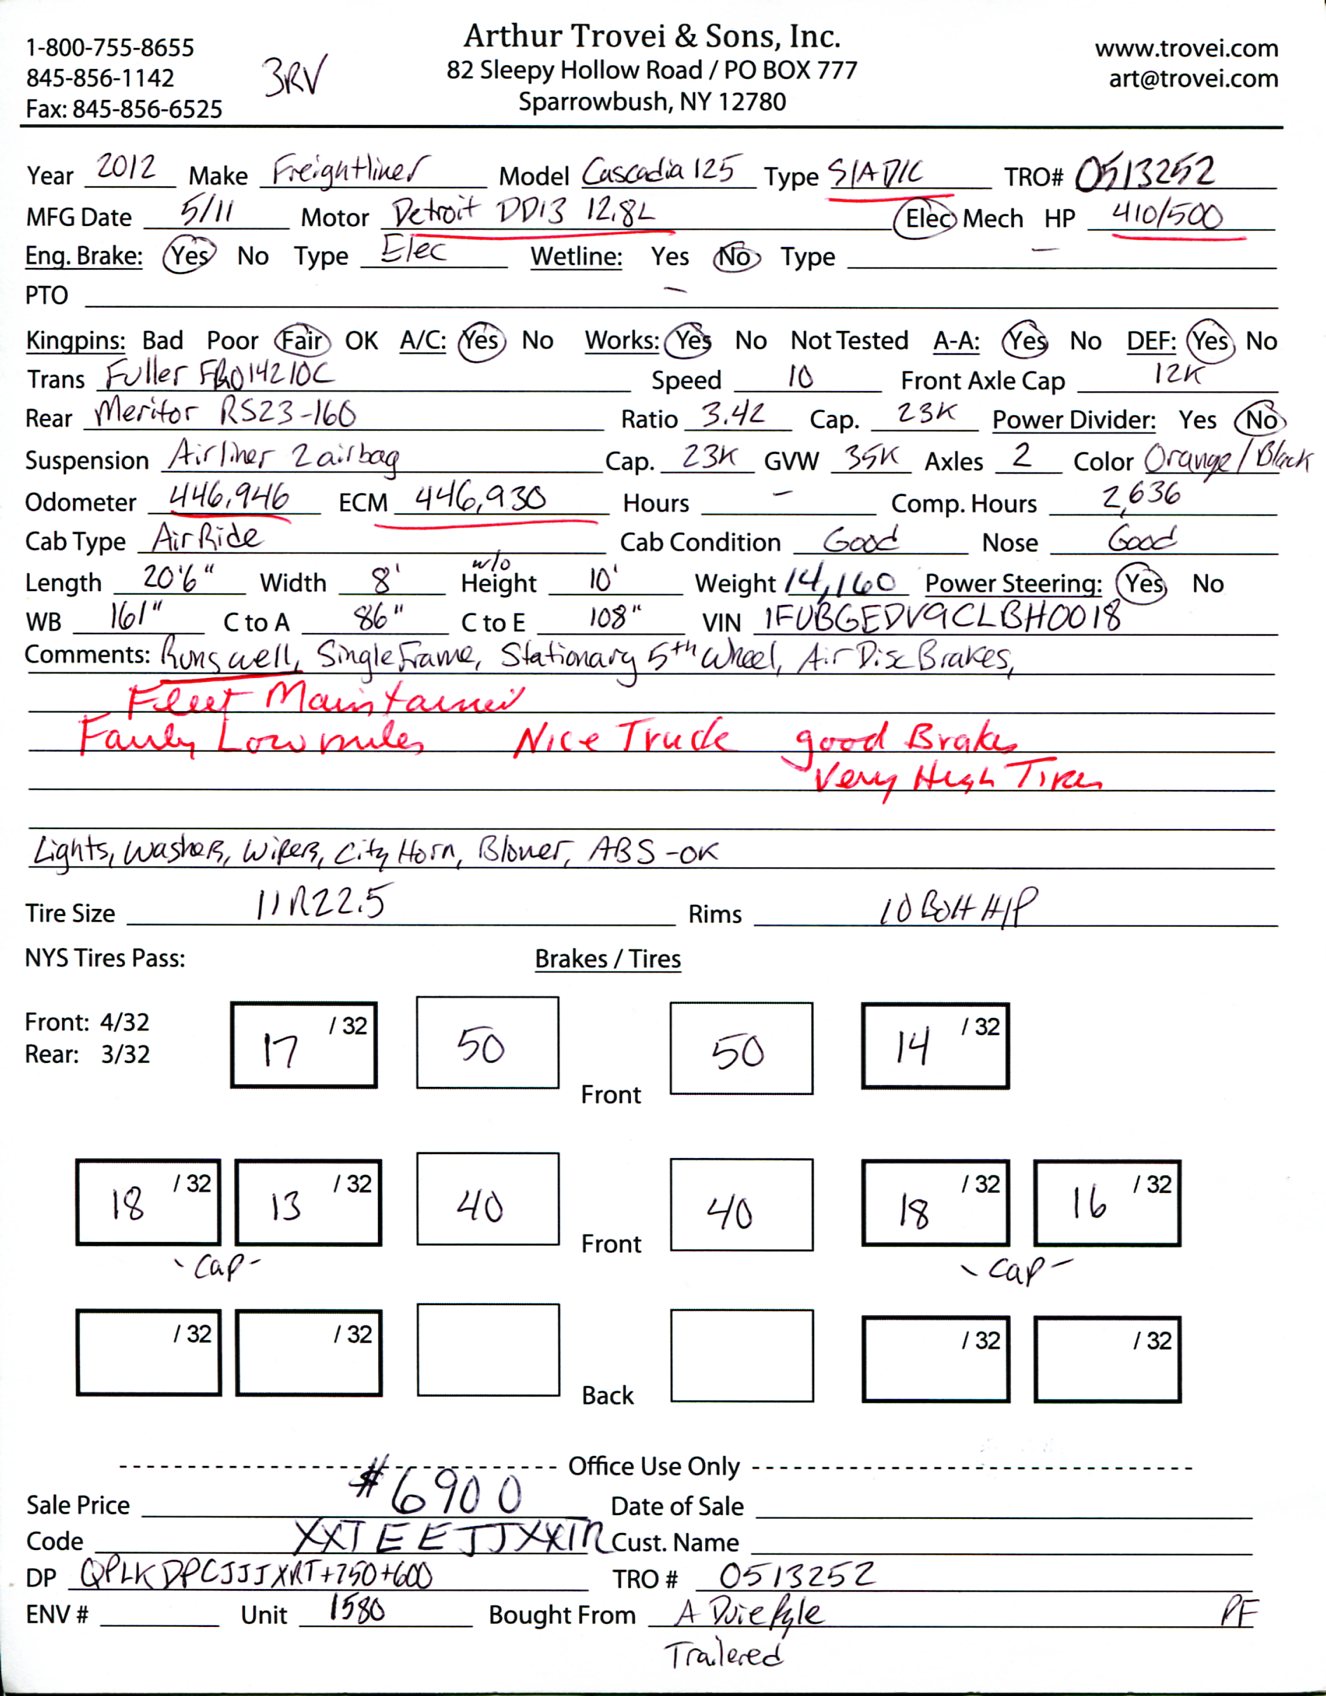 1-800-755-8655
845-856-1142
Fax: 845-856-6525
3RV
Arthur Trovei & Sons, Inc.
82 Sleepy Hollow Road / PO BOX 777
Sparrowbush, NY 12780
www.trovei.com
art@trovei.com
Year 2012 Make Freightliner Model Cascadia 125 Type S/A D/C TRO# 0513252
MFG Date 5/11 Motor Detroit DD13 12.8L Elec Mech HP 410/500
Eng. Brake: Yes No Type Elec Wetline: Yes No Type —
PTO —
Kingpins: Bad Poor Fair OK A/C: Yes No Works: Yes No Not Tested A-A: Yes No DEF: Yes No
Trans Fuller FRO14210C Speed 10 Front Axle Cap 12K
Rear Meritor RS23-160 Ratio 3.42 Cap. 23K Power Divider: Yes No
Suspension Airliner 2 airbag Cap. 23K GVW 35K Axles 2 Color Orange/Black
Odometer 446,946 ECM 446,930 Hours — Comp. Hours 2,636
Cab Type Air Ride Cab Condition Good Nose Good
Length 20'6" Width 8' w/o Height 10' Weight 14,160 Power Steering: Yes No
WB 161" C to A 86" C to E 108" VIN 1FUBGEDV9CLBH0018
Comments: Runs well, Single Frame, Stationary 5th Wheel, Air Disc Brakes,
Fleet Maintained
Fairly Low miles Nice Truck good Brakes
Very High Tires
Lights, Washers, Wipers, City Horn, Blower, ABS-OK
Tire Size 11R22.5 Rims 10 Bolt H/P
NYS Tires Pass: Brakes / Tires
Front: 4/32
Rear: 3/32
17 /32 50 Front 50 14 /32
18 /32 13 /32 40 Front 40 18 /32 16 /32
-Cap- -Cap-
/32 /32 Back /32 /32
Office Use Only
Sale Price #6900 Date of Sale
Code XXTEETJJXXTR Cust. Name
DP QPLKDPCJJJXRT+750+600 TRO # 0513252
ENV # Unit 1580 Bought From A Duie Pyle PF
Trailered